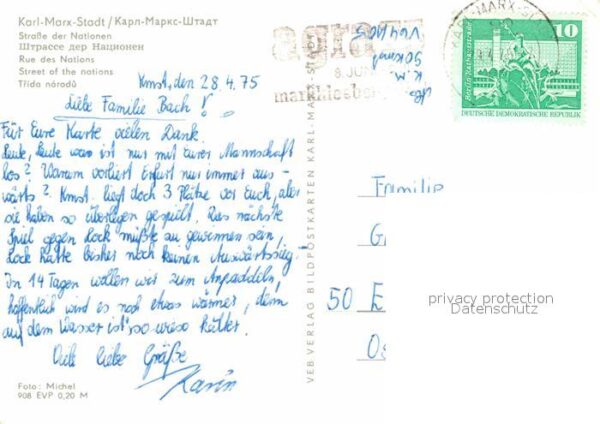 Karl-Marx-Stadt / Карл-Маркс-Штадт
Straße der Nationen
Штрассе дер Национен
Rue des Nations
Street of the nations
Třída národů
Kmst, den 28.4.75
Liebe Familie Bach!
Für Eure Karte vielen Dank.
Leute, Leute was ist nur mit Eurer Mannschaft
los? Warum verliert Erfurt nur immer aus-
wärts? Kmst. liegt doch 3 Plätze vor Euch, aber
sie haben so überlegen gespielt. Das nächste
Spiel gegen Lock müßte zu gewinnen sein,
Lock hatte bisher noch keinen Auswärtssieg!
In 14 Tagen wollen wir zum Anpaddeln,
hoffentlich wird es noch etwas wärmer, denn
auf dem Wasser ist's so wieso kälter.
Viele liebe Grüße
Karin
Foto: Michel
908 EVP 0,20 M
VEB VERLAG BILDPOSTKARTEN KARL-MARX-STADT
agra
8. JU
markkleeberg
KARL-MARX-S
10
Berlin, Rathausstraße
DEUTSCHE DEMOKRATISCHE REPUBLIK
Familie
G
50 E
privacy protection
Datenschutz